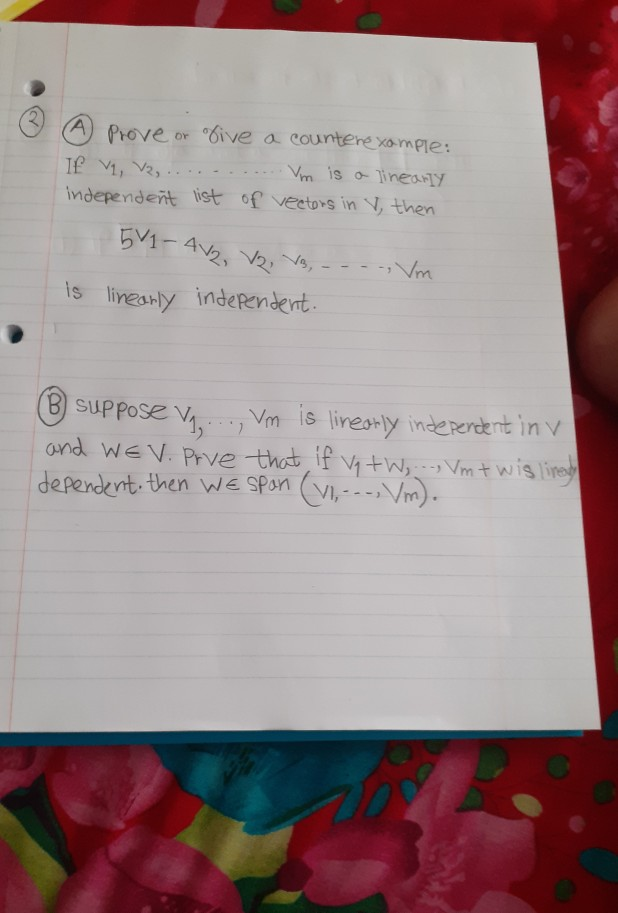 2 A Prove or Give a counterexample:
If V1, V2, ............ Vm is a linearly
independent list of vectors in V, then
5V1 - 4V2, V2, V3, - - - -, Vm
is linearly independent.
B suppose V1, ..., Vm is linearly independent in V
and W ∈ V. Prve that if V1 + W, ..., Vm + w is linearly
dependent. then W ∈ span (V1, ---, Vm).